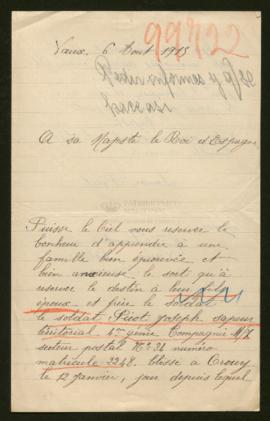 Vaux, 6 Aout 1915
99722
Pedir informes y
A sa Majesté le Roi d'Espagne
Puisse le Ciel vous réserver le
bonheur d'apprendre à une
famille bien éprouvée et
bien anxieuse le sort qu'à
réservé le destin à leur fils
époux et frère le soldat
le soldat Picot Joseph sapeur
territorial 4me génie Compagnie M/X
secteur postal No 34 numéro
matricule 2248. blessé à Crouy
le 12 Janvier, jour depuis lequel